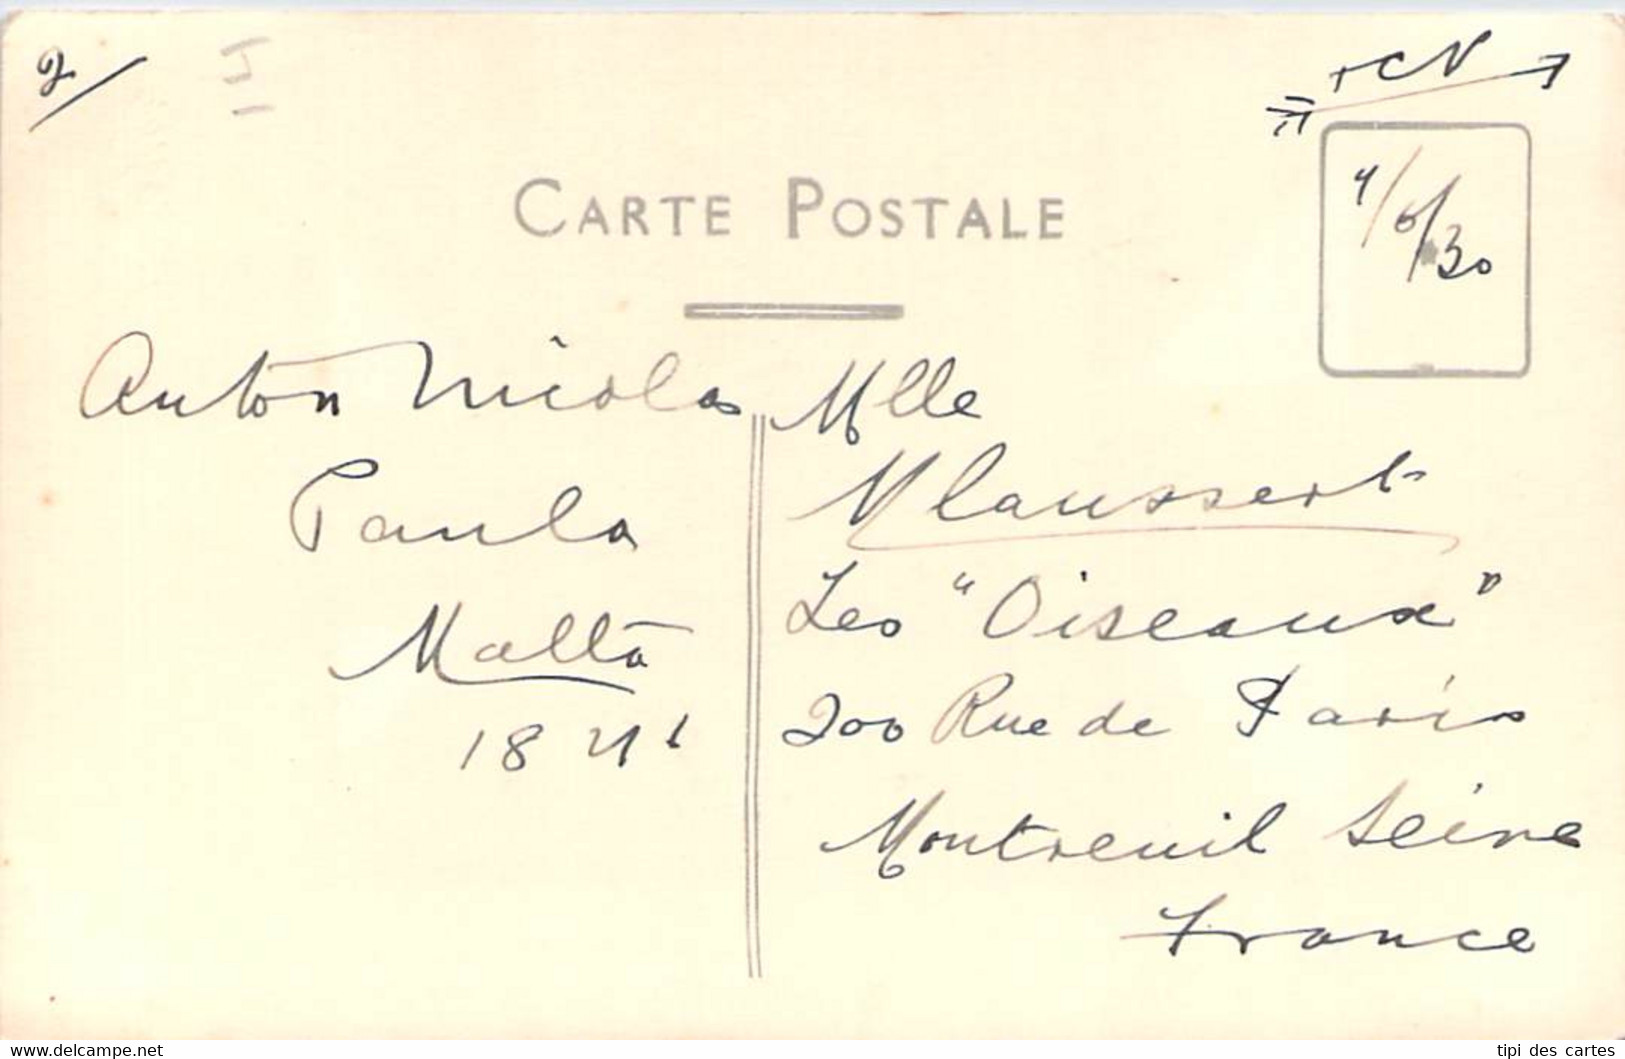 2/
TCN
4/6/30
CARTE POSTALE
Anton Nicolas
Paula
Malta
18
Mlle
M Laussert
Les "Oiseaux"
200 Rue de Paris
Montreuil Seine
France
www.delcampe.net
tipi des cartes